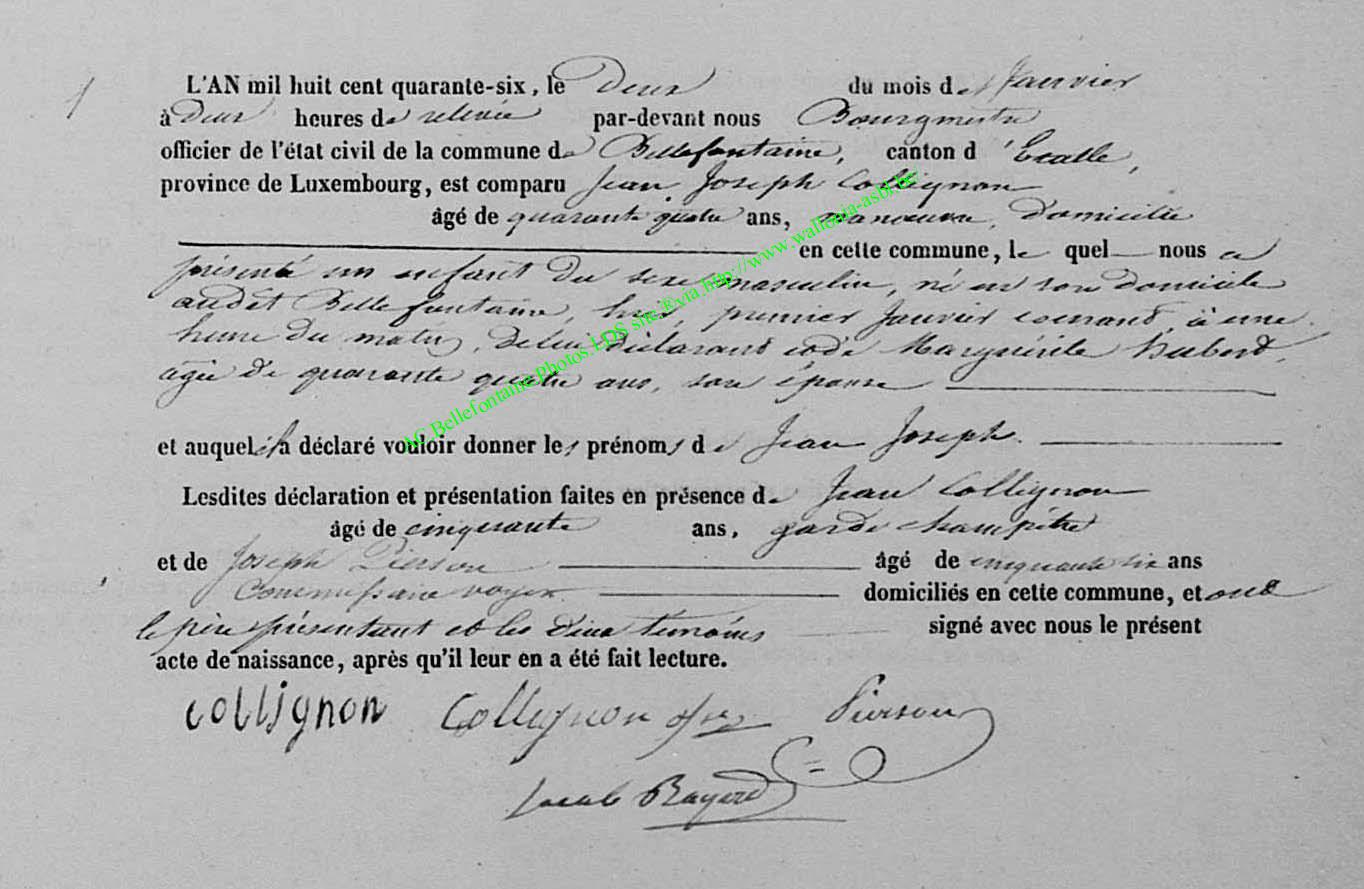 1
L'AN mil huit cent quarante-six, le Deux du mois de Janvier
à Deux heures de relevée par-devant nous Bourgmestre
officier de l'état civil de la commune de Bellefontaine, canton d'Etalle,
province de Luxembourg, est comparu Jean Joseph Collignon
âgé de quarante quatre ans, manœuvre, domicilié
en cette commune, le quel nous a
présenté un enfant du sexe masculin, né en son domicile
audit Bellefontaine, hier, premier Janvier courant, à une
heure du matin, de lui déclarant et de Marguerite Hubert
agée de quarante quatre ans, son épouse
et auquel il a déclaré vouloir donner les prénoms de Jean Joseph.
Lesdites déclaration et présentation faites en présence de Jean Collignon
âgé de cinquante ans, garde champêtre
et de Joseph Pierson âgé de cinquante six ans
Commissaire voyer domiciliés en cette commune, et ont
le père présentant et les deux témoins signé avec nous le présent
acte de naissance, après qu'il leur en a été fait lecture.
collignon Collignon Pierson
Bayard
AC Bellefontaine Photos LDS site/Exvia http://www.wallonia-asbl.be/